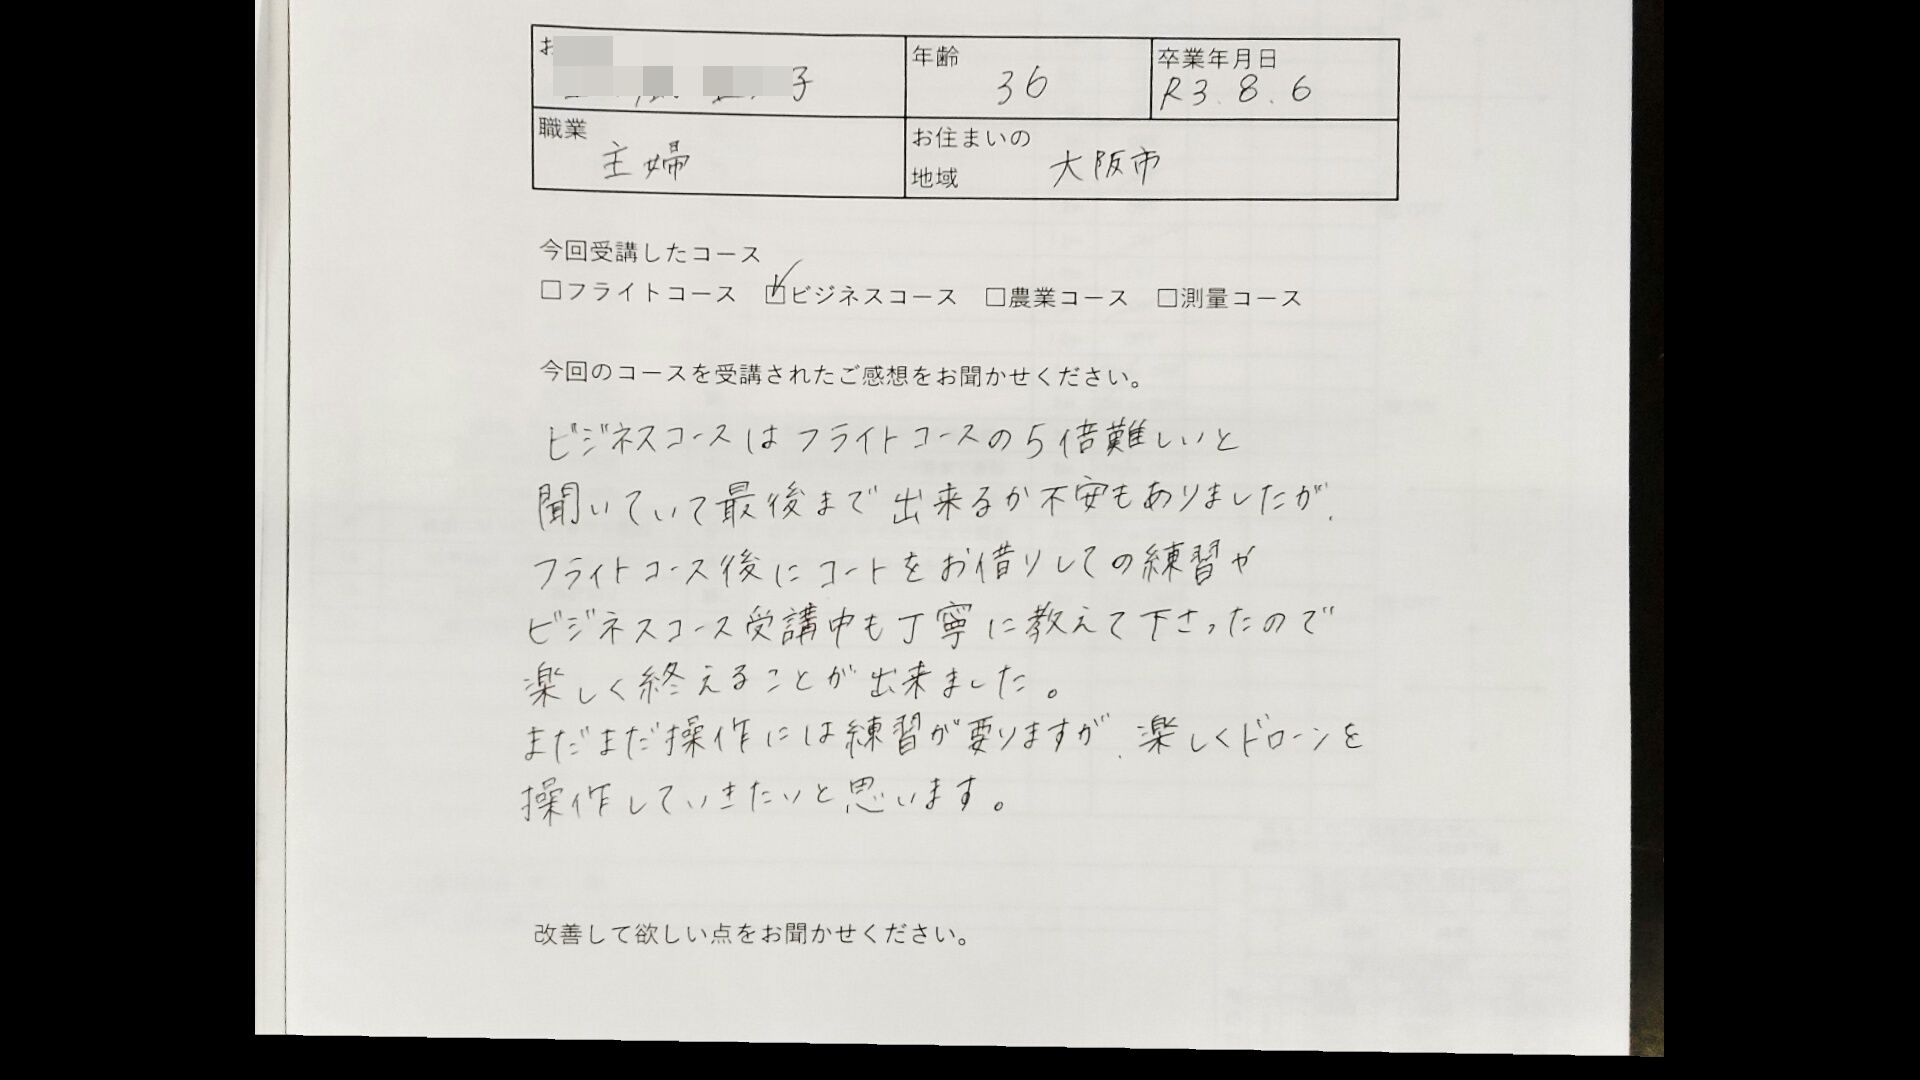 お
子
年齢
36
卒業年月日
R3.8.6
職業
主婦
お住まいの
地域
大阪市
今回受講したコース
□フライトコース ☑ビジネスコース □農業コース □測量コース
今回のコースを受講されたご感想をお聞かせください。
ビジネスコースはフライトコースの5倍難しいと
聞いていて最後まで出来るか不安もありましたが、
フライトコース後にコートをお借りしての練習や
ビジネスコース受講中も丁寧に教えて下さったので
楽しく終えることが出来ました。
まだまだ操作には練習が要りますが、楽しくドローンを
操作していきたいと思います。
改善して欲しい点をお聞かせください。